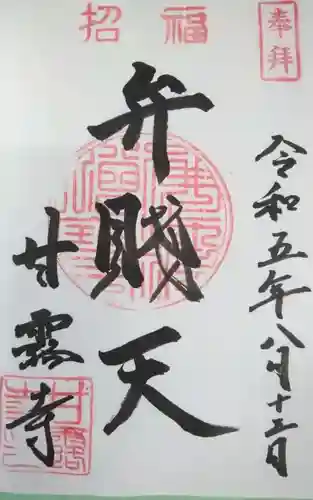 奉拝
招福
令和五年八月十日
弁財天
甘露寺